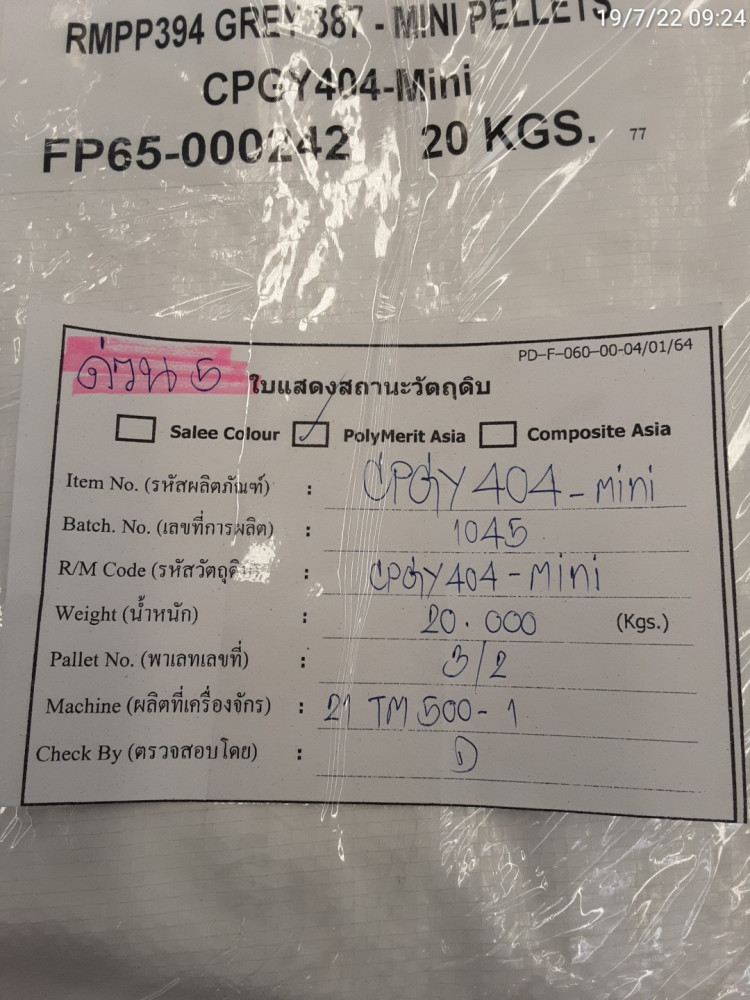 RMPP394 GREY 387 - MINI PELLETS
19/7/22 09:24
CPGY404-Mini
FP65-000242 20 KGS. 77
PD-F-060-00-04/01/64
ด่วน 5 ใบแสดงสถานะวัตถุดิบ
Salee Colour PolyMerit Asia Composite Asia
Item No. (รหัสผลิตภัณฑ์) : CPGY404-mini
Batch. No. (เลขที่การผลิต) : 1045
R/M Code (รหัสวัตถุดิบ) : CPGY404-mini
Weight (น้ำหนัก) : 20.000 (Kgs.)
Pallet No. (พาเลทเลขที่) : 3/2
Machine (ผลิตที่เครื่องจักร) : 21 TM 500-1
Check By (ตรวจสอบโดย) :